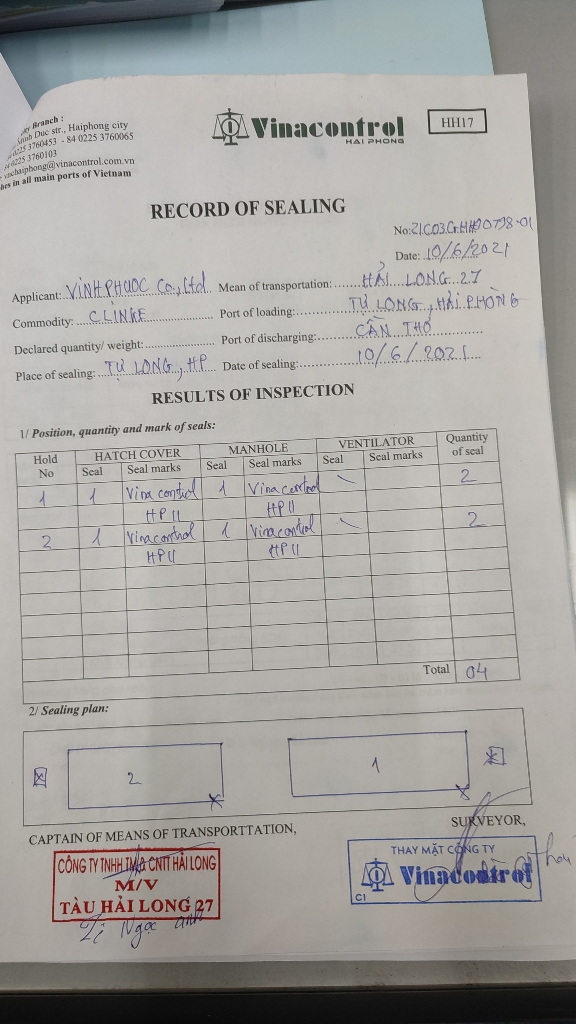 Branch :
Duc str., Haiphong city
0225 3760453 - 84 0225 3760065
0225 3760103
haiphong@vinacontrol.com.vn
in all main ports of Vietnam
Vinacontrol
HAI PHONG
HH17
RECORD OF SEALING
No: 21C03GHH00798-01
Date: 10/6/2021
Applicant: VINH PHUOC Co., Ltd Mean of transportation: HẢI LONG 27
Commodity: CLINKE Port of loading: TỰ LONG, HẢI PHÒNG
Declared quantity/ weight: Port of discharging: CẦN THƠ
Place of sealing: TỰ LONG, HP Date of sealing: 10/6/2021
RESULTS OF INSPECTION
1/ Position, quantity and mark of seals:
Hold No HATCH COVER MANHOLE VENTILATOR Quantity of seal
Seal Seal marks Seal Seal marks Seal Seal marks
1 1 Vinacontrol HP II 1 Vinacontrol HP II \ 2
2 1 Vinacontrol HP II 1 Vinacontrol HP II \ 2
Total 04
2/ Sealing plan:
2 1
CAPTAIN OF MEANS OF TRANSPORTTATION, SURVEYOR,
CÔNG TY TNHH TM& CNTT HẢI LONG
M/V
TÀU HẢI LONG 27
Ngọc anh
THAY MẶT CÔNG TY
Vinacontrol
CI